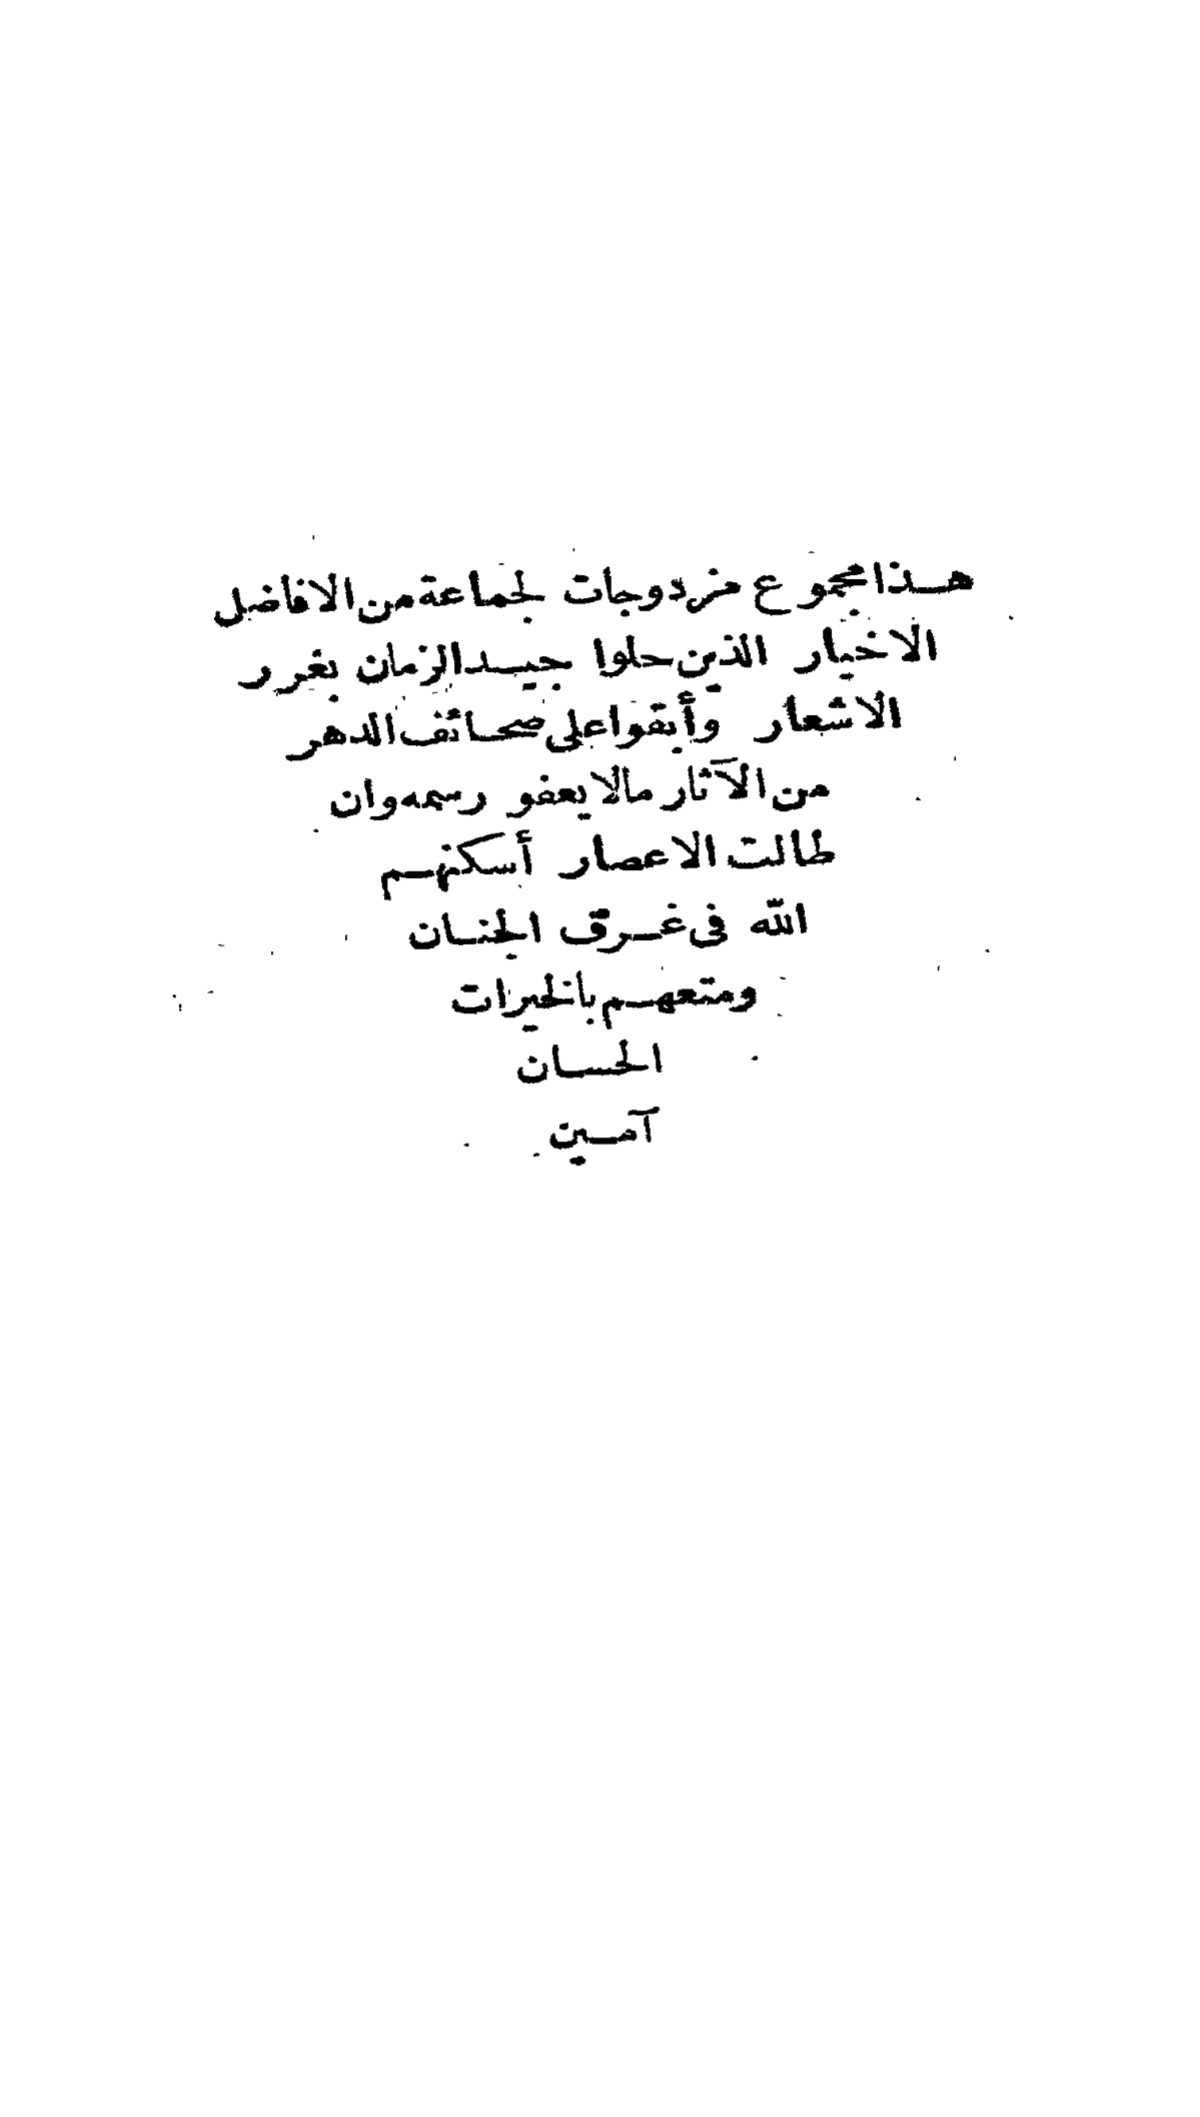 هذا مجموع مزدوجات لجماعة من الافاضل
الاخيار الذين حلوا جيد الزمان بغرر
الاشعار وأبقوا على صحائف الدهر
من الآثار مالا يعفو رسمه وان
طالت الاعصار أسكنهم
الله فى غرف الجنان
ومتعهم بالخيرات
الحسان
آمين